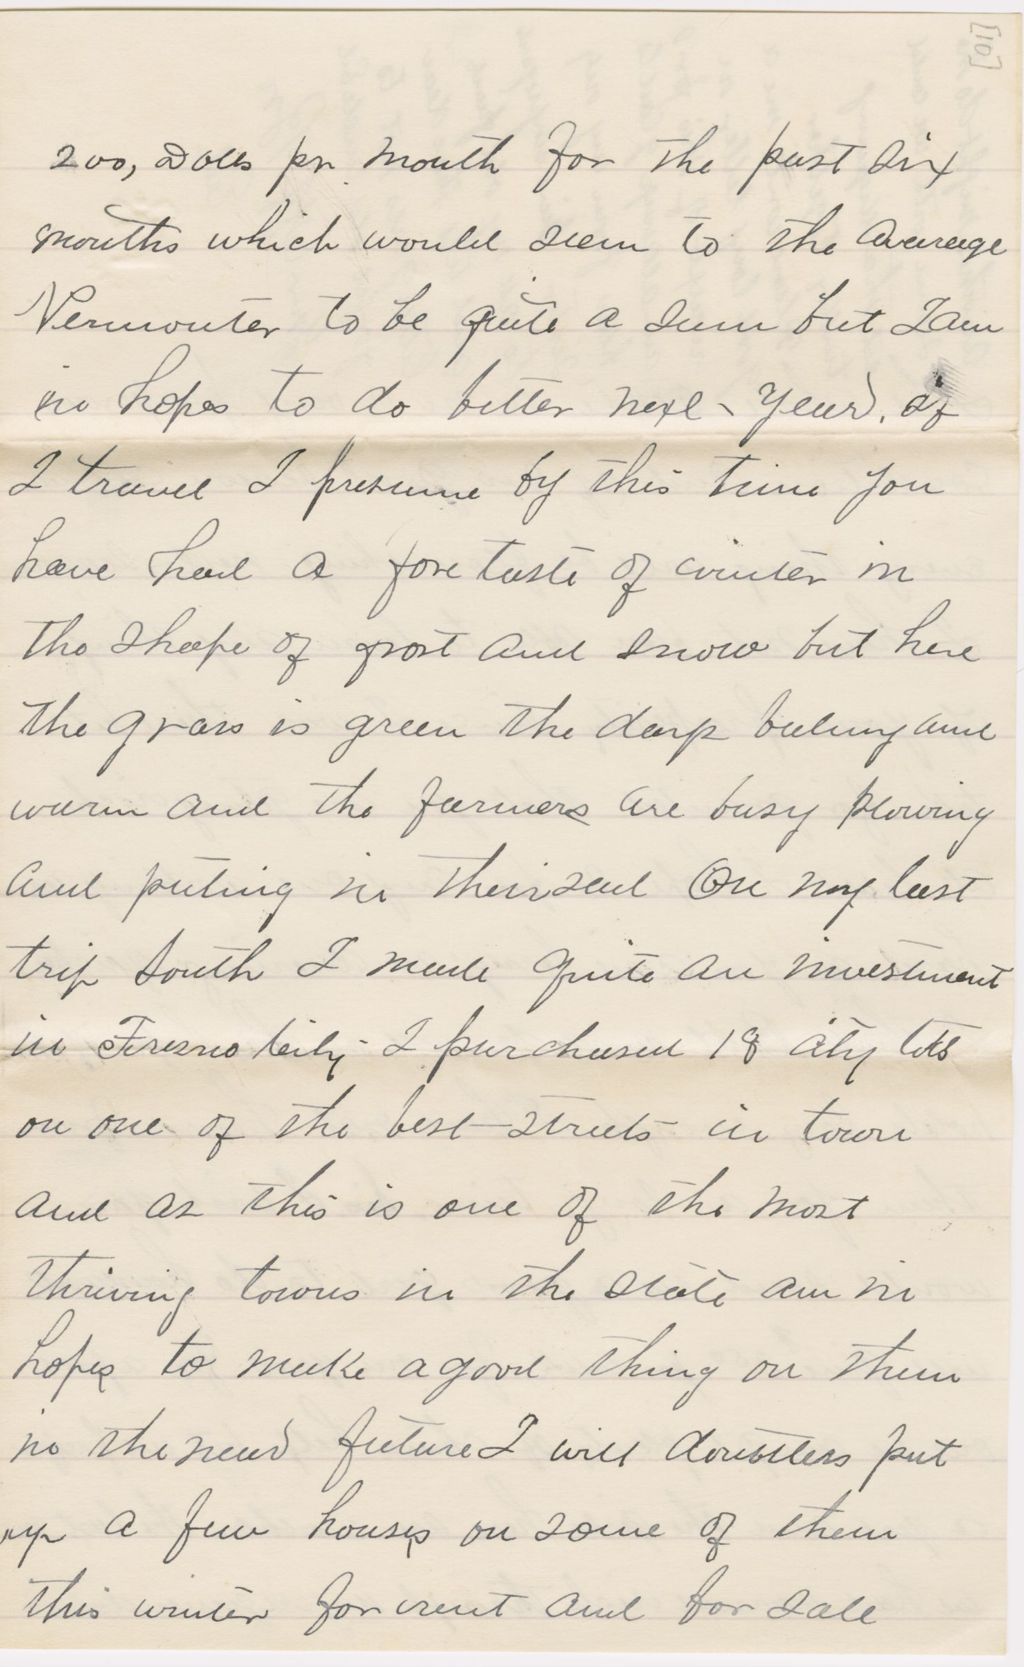 [10]
200, Dolls pr. month for the past six
months which would seem to the average
Vermonter to be quite a sum but I am
in hopes to do better next year. if
I travel I presume by this time you
have had a fore taste of winter in
the shape of frost and snow but here
the grass is green the days balmy and
warm and the farmers are busy plowing
and puting in their seed On my last
trip South I made quite an investment
in Fresno City I purchased 18 city lots
on one of the best streets in town
and as this is one of the most
thriving towns in the state am in
hopes to make a good thing on them
in the near future I will doubtless put
up a few houses on some of them
this winter for rent and for sale